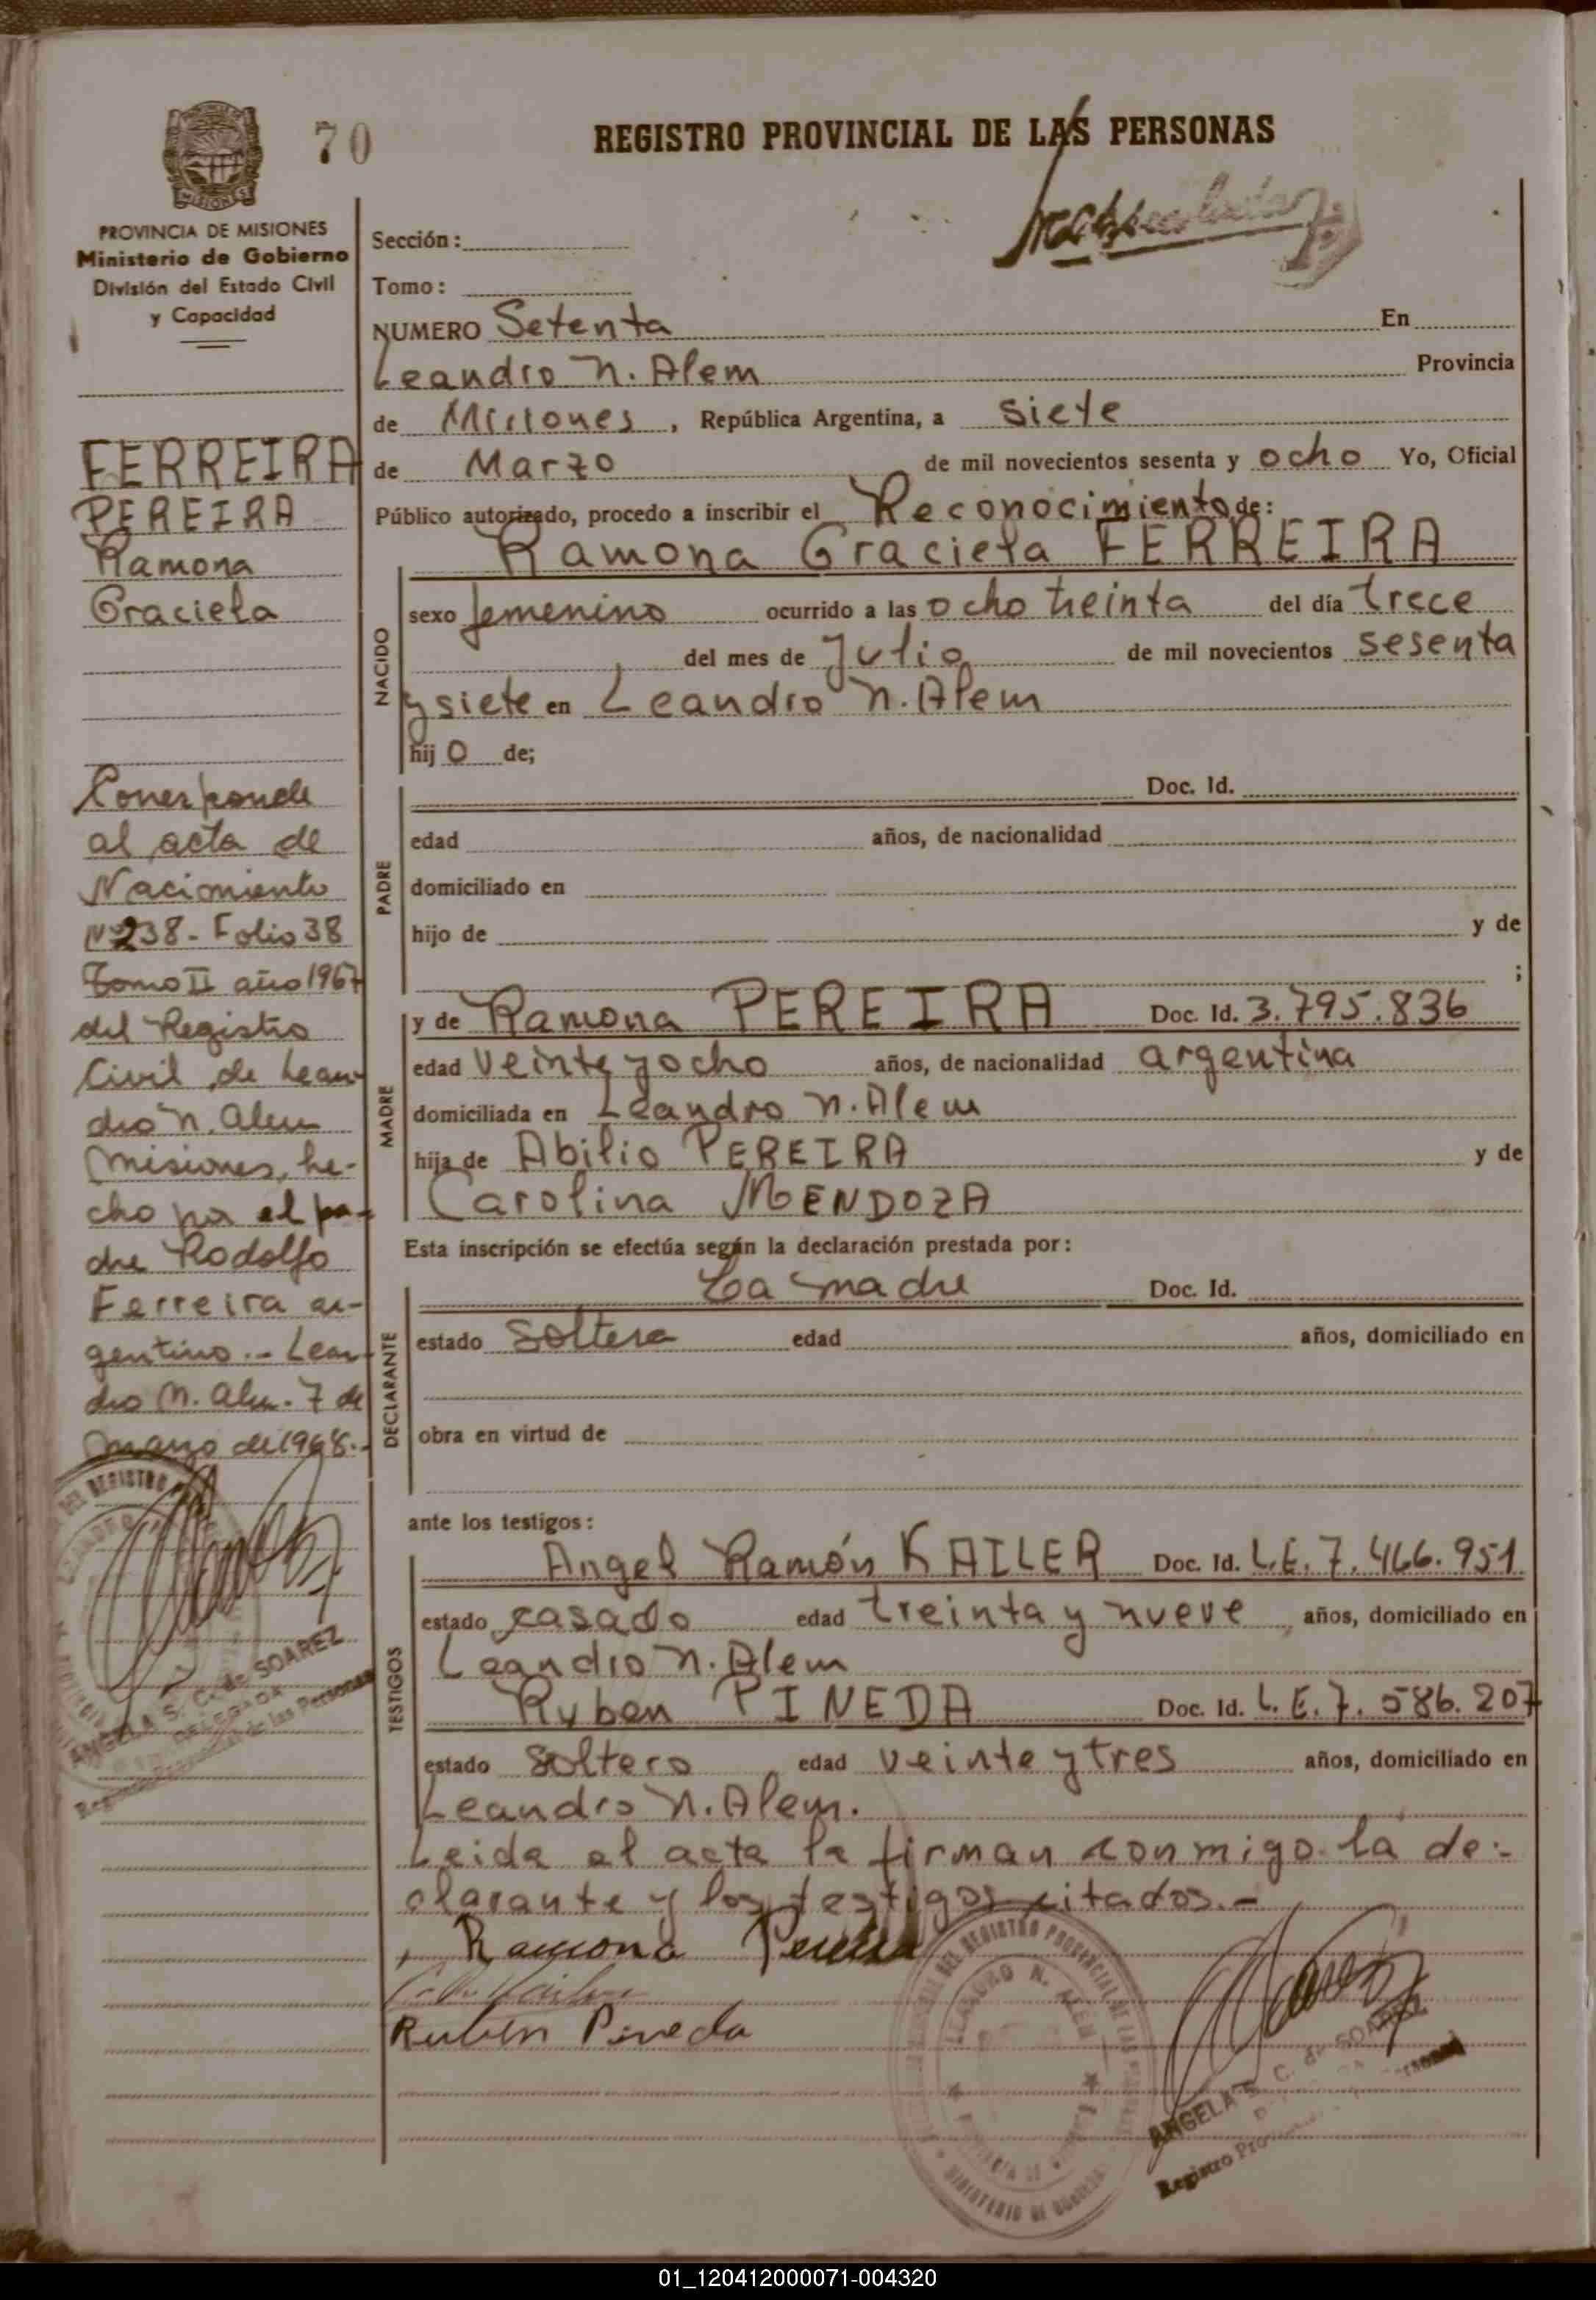 70
REGISTRO PROVINCIAL DE LAS PERSONAS
MISIONES
PROVINCIA DE MISIONES
Ministerio de Gobierno
División del Estado Civil
y Capacidad
FERREIRA
PEREIRA
Ramona
Graciela
Corresponde
al acta de
Nacimiento
Nº238 - Folio 38
Tomo II año 1967
del Registro
Civil de Lean-
dro N. Alem
Misiones, he-
cho por el pa-
dre Rodolfo
Ferreira ar-
gentino.- Lean-
dro N. Alem. 7 de
marzo de 1968.-
ANGELA S. C. de SOAREZ
DELEGADA
Registro Provincial de las Personas
Sección:
Tomo:
NUMERO Setenta En
Leandro N. Alem Provincia
de Misiones, República Argentina, a siete
de Marzo de mil novecientos sesenta y ocho Yo, Oficial
Público autorizado, procedo a inscribir el Reconocimiento de:
Ramona Graciela FERREIRA
NACIDO
sexo femenino ocurrido a las ocho treinta del día trece
del mes de Julio de mil novecientos sesenta
y siete en Leandro N. Alem
hijo de;
PADRE
Doc. Id.
edad años, de nacionalidad
domiciliado en
hijo de y de
;
MADRE
y de Ramona PEREIRA Doc. Id. 3.795.836
edad veinte y ocho años, de nacionalidad argentina
domiciliada en Leandro N. Alem
hija de Abilio PEREIRA y de
Carolina MENDOZA
Esta inscripción se efectúa según la declaración prestada por:
DECLARANTE
La madre Doc. Id.
estado soltera edad años, domiciliado en
obra en virtud de
ante los testigos:
TESTIGOS
Angel Ramón KAILER Doc. Id. L.E. 7.466.951
estado casado edad treinta y nueve, años, domiciliado en
Leandro N. Alem
Ruben PINEDA Doc. Id. L.E. 7.586.207
estado soltero edad veinte y tres años, domiciliado en
Leandro N. Alem.
Leida el acta la firman conmigo la de-
clarante y los testigos citados.-
Ramona Pereira
Ruben Pineda
LEANDRO N. ALEM
ANGELA S. C. de SOAREZ
01_120412000071-004320